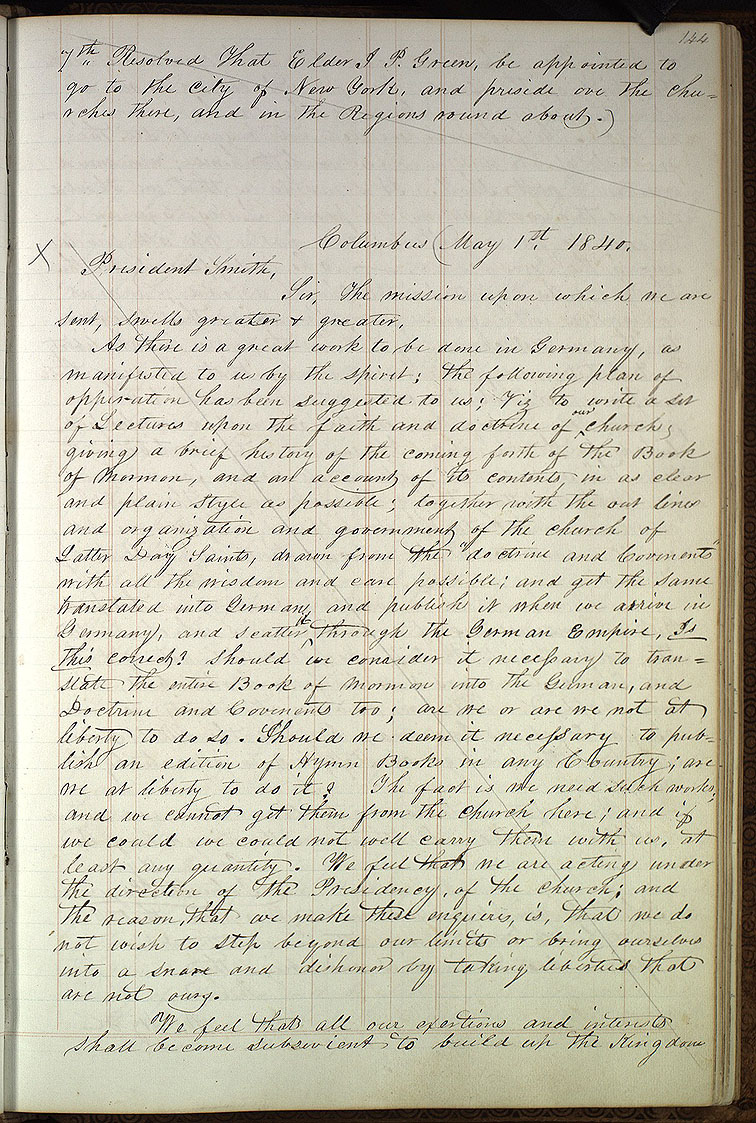 144
"7th" Resolved That Elder J P. Green, be appointed to
go to the city of New York, and preside ove the chu=
rches there, and in the Regions round about.)
Columbus May 1st. 1840.
X
President Smith,
Sir, The mission upon which we are
sent, swells greater & greater.
As there is a great work to be done in Germany, as
manifested to us by the spirit; the following plan of
opperation has been suggested to us; Viz to write a set
of Lectures upon the faith and doctrine of our church;
giving a brief history of the coming forth of the Book
of Mormon, and an account of its contents, in as clear
and plain style as possible; together with the out lines
and organization and government of the church of
Latter Day Saints, drawn from the "doctrine and Covenents"
with all the wisdom and care possible; and get the same
translated into German, and publish it when we arrive in
Germany, and scatter it through the German Empire, Is
this correct? Should we consider it necessary to tran=
slate the entire Book of Mormon into the German, and
Doctrine and Covenents too; are we or are we not at
liberty to do so. Should we deem it necessary to pub-
lish an edition of Hymn Books in any Country; are
we at liberty to do it? The fact is we need such works;
and we cannot get them from the church here; and if
we could we could not well carry them with us, at
least any quantity. We feel that we are acting under
the direction of the Presidency, of the church; and
the reason, that we make these enquires, is, that we do
not wish to step beyond our limits or bring ourselves
into a snare and dishonor by taking liberties that
are not ours.
We feel that all our exertions and interests
shall become subsevient to build up the Kingdom